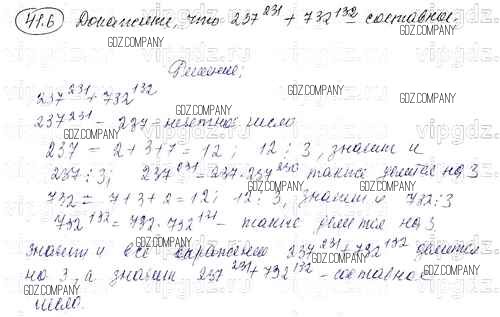 41.6 Докажите, что 237²³¹ + 732¹³² – составное.
GDZ.COMPANY
Решение:
237²³¹ + 732¹³²
237²³¹ – 237 – нечетное число
237 = 2+3+7 = 12; 12 ⋮ 3, значит и
237 ⋮ 3; 237²³¹ = 237·237²³⁰ также делится на 3
732 = 7+3+2 = 12; 12 ⋮ 3, значит и 732 ⋮ 3
732¹³² = 732·732¹³¹ – также делится на 3,
значит и все выражение 237²³¹+732¹³² делится
на 3, а значит 237²³¹+732¹³² – составное
число.